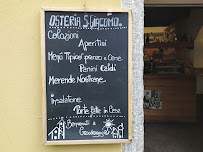 OSTERIA S.GIACOMO
Colazioni
Aperitivi
Menù Tipico pranzo e Cena
Panini Caldi
Merende Nostrane
Insalatone
Torte Fatte in Casa